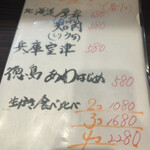 北海道 厚岸 580
知内 580
兵庫室津 580
徳島 あわはじめ 580
生かき食べ比べ 2コ 1080
3コ 1680
4コ 2280